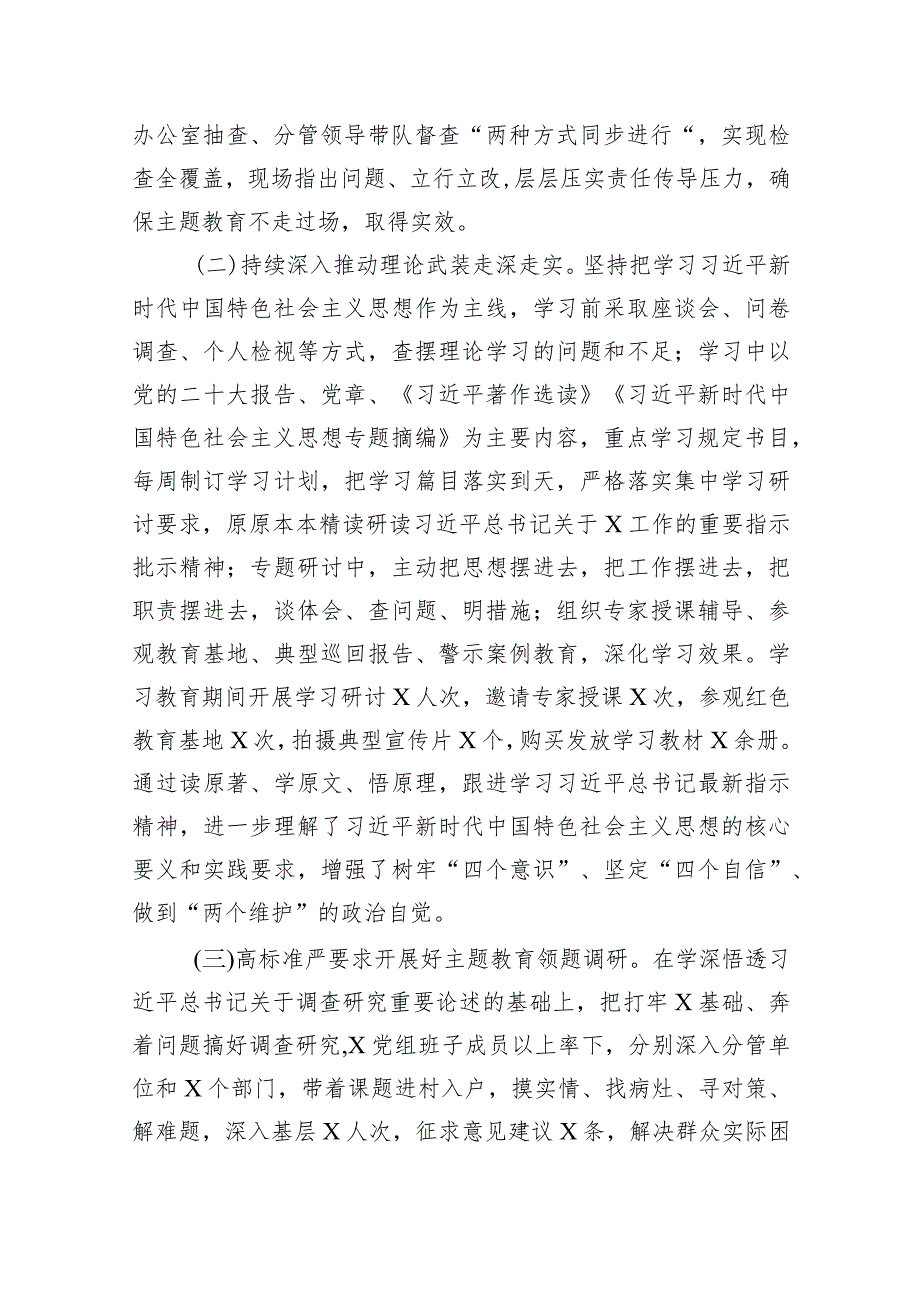 办公室抽查、分管领导带队督查“两种方式同步进行“，实现检
查全覆盖，现场指出问题、立行立改,层层压实责任传导压力，确
保主题教育不走过场，取得实效。
(二)持续深入推动理论武装走深走实。坚持把学习习近平新
时代中国特色社会主义思想作为主线，学习前采取座谈会、问卷
调查、个人检视等方式，查摆理论学习的问题和不足；学习中以
党的二十大报告、党章、《习近平著作选读》《习近平新时代中
国特色社会主义思想专题摘编》为主要内容，重点学习规定书目，
每周制订学习计划，把学习篇目落实到天，严格落实集中学习研
讨要求，原原本本精读研读习近平总书记关于X工作的重要指示
批示精神；专题研讨中，主动把思想摆进去，把工作摆进去，把
职责摆进去，谈体会、查问题、明措施；组织专家授课辅导、参
观教育基地、典型巡回报告、警示案例教育，深化学习效果。学
习教育期间开展学习研讨X人次，邀请专家授课X次，参观红色
教育基地X次，拍摄典型宣传片X个，购买发放学习教材X余册。
通过读原著、学原文、悟原理，跟进学习习近平总书记最新指示
精神，进一步理解了习近平新时代中国特色社会主义思想的核心
要义和实践要求，增强了树牢“四个意识”、坚定“四个自信”、
做到“两个维护”的政治自觉。
(三)高标准严要求开展好主题教育领题调研。在学深悟透习
近平总书记关于调查研究重要论述的基础上，把打牢X基础、奔
着问题搞好调查研究,X党组班子成员以上率下，分别深入分管单
位和X个部门，带着课题进村入户，摸实情、找病灶、寻对策、
解难题，深入基层X人次，征求意见建议X条，解决群众实际困